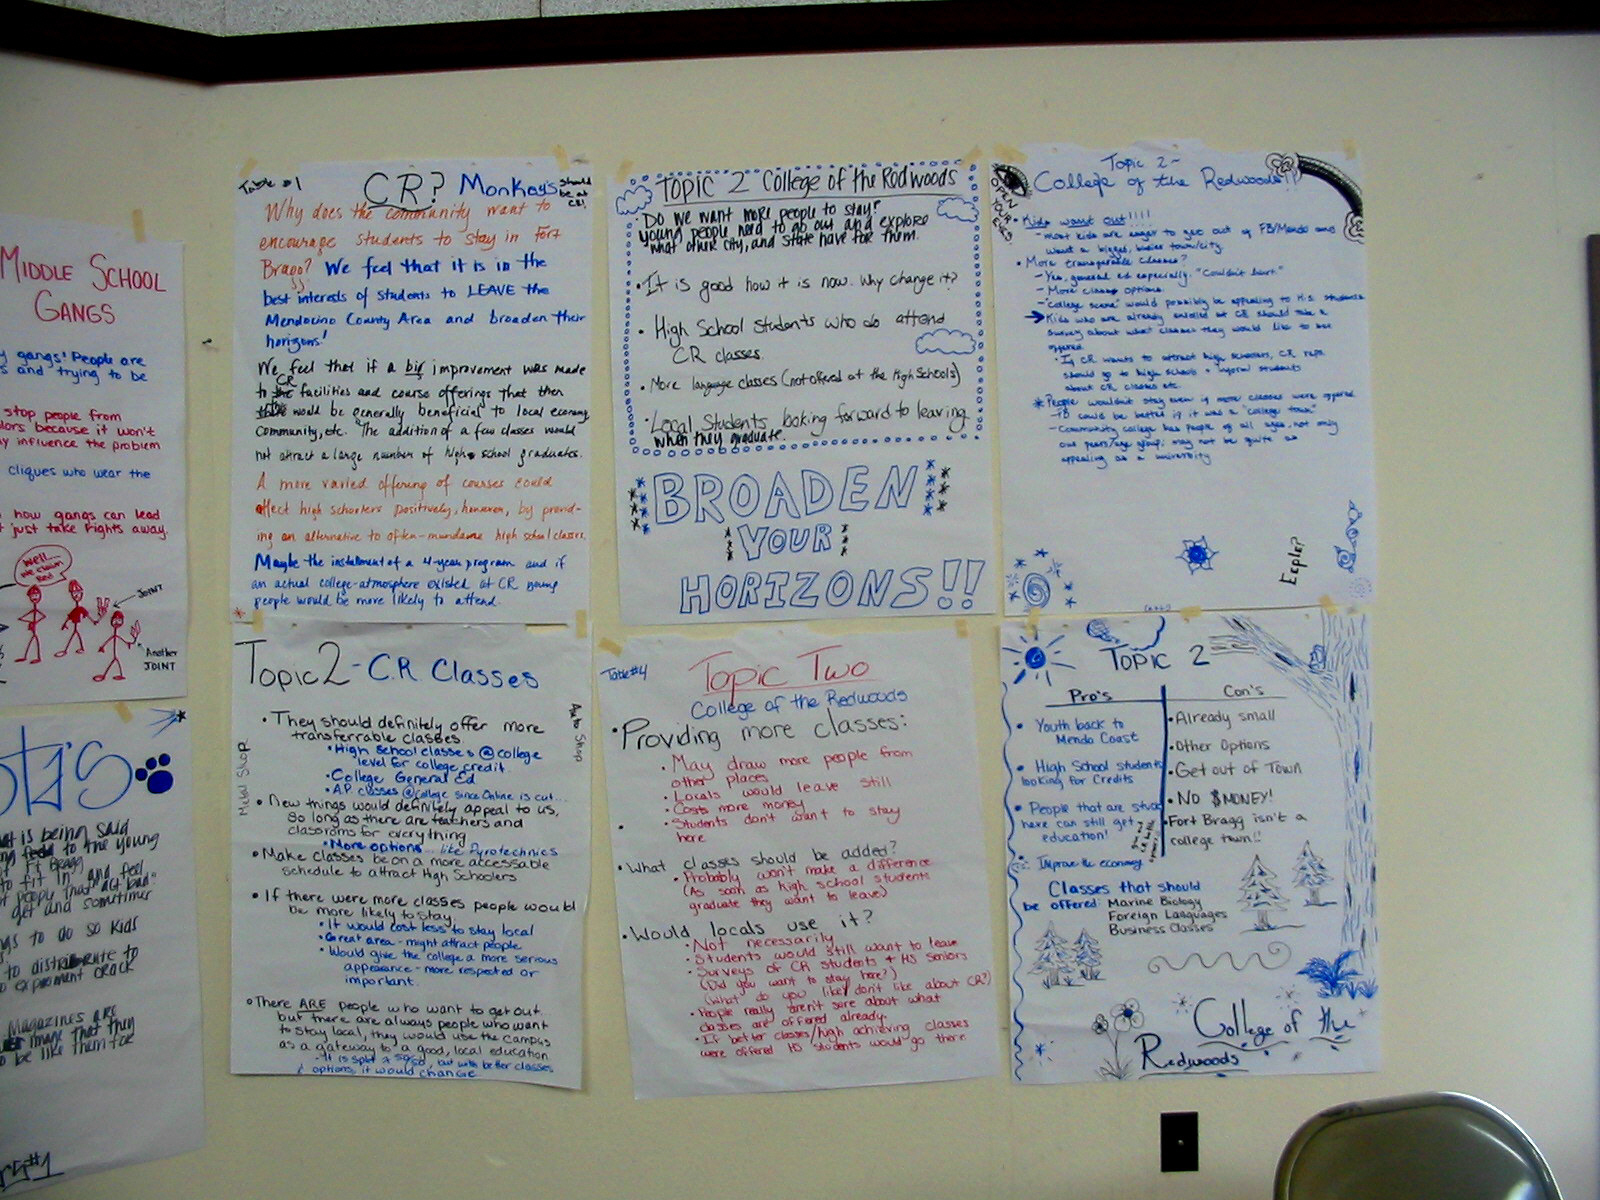 MIDDLE SCHOOL
GANGS
gangs! People are
and trying to be
stop people from
because it won't
influence the problem
cliques who wear the
how gangs can lead
just take rights away.
Well...
JOINT
Another
JOINT
is being said
to the young
Ft Bragg
to fit in" and feel
get and sometimes
to do so kids
to distribute to
to experiment crack
Magazines are
that they
be like them for
#1
Table #1
CR?
Monkey's should
be at
CR!
Why does the community want to
encourage students to stay in Fort
Bragg? We feel that it is in the
best interests of students to LEAVE the
Mendocino County Area and broaden their
horizons!
We feel that if a big improvement was made
to CR facilities and course offerings that then
would be generally beneficial to local economy,
community, etc. The addition of a few classes would
not attract a large number of high school graduates.
A more varied offering of courses could
affect high schoolers positively, however, by provid-
ing an alternative to often-mundane high school classes.
Maybe the installment of a 4-year program and if
an actual college-atmosphere existed at CR young
people would be more likely to attend.
Topic 2 College of the Redwoods
• Do we want more people to stay?
young people need to go out and explore
what other city, and state have for them.
• It is good how it is now. Why change it?
• High School Students who do attend
CR classes.
• More language classes (not offered at the High Schools)
• Local Students looking forward to leaving
when they graduate.
BROADEN
YOUR
HORIZONS!!
OPEN
YOUR
EYES.
Topic 2-
College of the Redwoods
• Kids want out!!!!
- most kids are eager to get out of FB/Mendo and
want a bigger, town/city.
• More transferable classes?
- Yes, general ed especially. "Couldn't hurt."
- More class options.
- "College scene" would possibly be appealing to H.S. students
→ Kids who are already enrolled at CR should take a
survey about what classes they would like to see
offered
• If CR wants to attract high schoolers, CR reps.
should go to high schools + inform students
about CR classes etc.
* People wouldn't stay even if more classes were offered
- FB could be better if it was a "college town"
- Community college has people of all ages, not only
our years/age group; may not be quite as
appealing as a university
Topic 2 - C.R Classes
Metal Shop
Auto Shop
• They should definitely offer more
transferrable classes
• High School classes @ college
level for college credit.
• College General Ed
• A.P. classes @ college since Online is cut...
• New things would definitely appeal to us,
so long as there are teachers and
classroms for everything
• More options... like Pyrotechnics
• Make classes be on a more accessable
schedule to attract High Schoolers
• If there were more classes people would
be more likely to stay.
• It would cost less to stay local
• Great area - might attract people
• Would give the college a more serious
appearance - more respected or
important.
• There ARE people who want to get out
but there are always people who want
to stay local, they would use the campus
as a gateway to a good, local education
- It is split + so-so, but with better classes
+ options, it would change
Table #4
Topic Two
College of the Redwoods
• Providing more classes:
• May draw more people from
other places
• Locals would leave still
• Costs more money
• Students don't want to stay
here
• What classes should be added?
• Probably won't make a difference
(As soon as high school students
graduate they want to leave)
• Would locals use it?
• Not necessarily
• Students would still want to leave
• Surveys of CR students + HS seniors
(Did you want to stay here?)
(What do you like/don't like about CR?)
• People really aren't sure about what
classes are offered already.
• If better classes/high achieving classes
were offered HS students would go there
Topic 2
Pro's
Con's
• Youth back to
Mendo Coast
• High School students
looking for Credits
• People that are stuck
here can still get
education!
• Improve the economy
• Already small
• Other Options
• Get out of Town
• No $MONEY!
• Fort Bragg isn't a
college town!!
Classes that should
be offered: Marine Biology
Foreign Languages
Business Classes
College of the
Redwoods